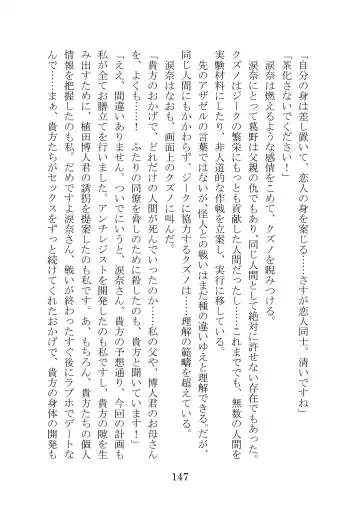 「自分の身は差し置いて、恋人の身を案じる……さすが恋人同士。清いですね」
「茶化さないでください！」
　涙奈は燃えるような感情をこめて、クズノを睨みつける。
　涙奈にとって葛野は父親の仇でもあり、同じ人間として絶対に許せない存在でもあった。
　クズノはジークの繁栄にもっとも貢献した人間だったし……これまででも、無数の人間を
実験材料にしたり、非人道的な作戦を立案し、実行に移している。
　先のアザゼルの言葉ではないが、怪人との戦いはまだ種の違いゆえと理解できる。だが、
同じ人間にもかかわらず、ジークに協力するクズノは……理解の範疇を超えている。
　涙奈はなおも、画面上のクズノに叫んだ。
「貴方のおかげで、どれだけの人間が死んでいったのか……私の父や、博人君のお母さん
を、よくも……！　ふたりの同僚を脅しのために殺したのも、貴方と聞いています！」
「ええ、間違いありません。ついでにいうと、涙奈さん、貴方の予想通り、今回の計画も
私が全てお膳立てを行いました。アンチレジストを開発したのも私ですし、貴方の隙を生
み出すために、植田博人君の誘拐を提案したのも私です。あ、もちろん、貴方たちが個人
情報を把握したのも私。だめですよ涙奈さん、戦いが終わったすぐ後にラブホでデートな
んて……まぁ、貴方たちがセックスをずっと続けてくれたおかげで、貴方の身体の開発も
147